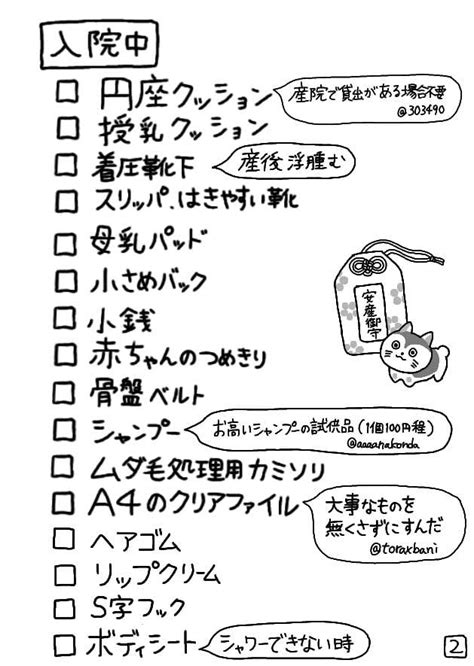 入院中
円座クッション
産院で貸出がある場合不要
@303490
授乳クッション
着圧靴下
産後浮腫む
スリッパ、はきやすい靴
母乳パッド
小さめバック
小銭
安産御守
赤ちゃんのつめきり
骨盤ベルト
シャンプー
お高いシャンプーの試供品(1個100円程)
@aaaanakonda
ムダ毛処理用カミソリ
A4のクリアファイル
大事なものを
無くさずにすんだ
@toraxbani
ヘアゴム
リップクリーム
S字フック
ボディシート
シャワーできない時
2